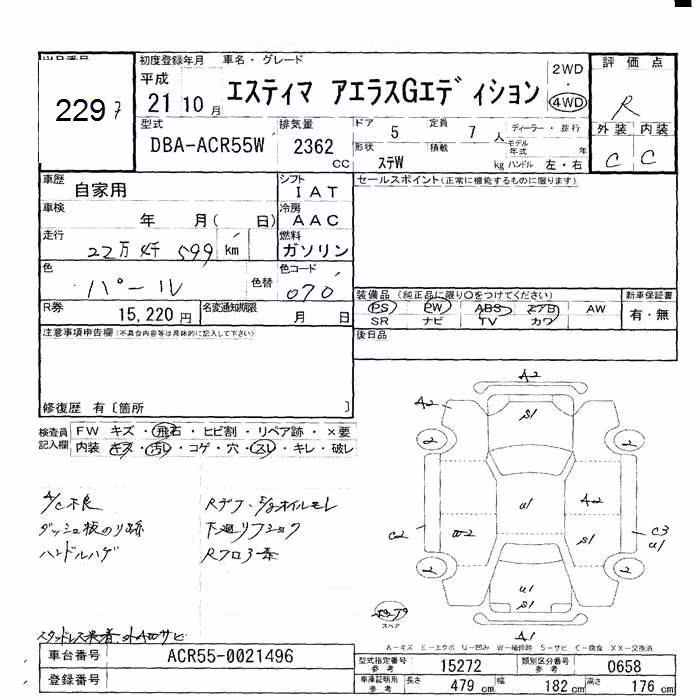 初度登録年月 車名・グレード 評価点
229 7
平成 21 10 月 エスティマ アエラスGエディション 2WD ・ 4WD R
型式 DBA-ACR55W 排気量 2362 CC ドア 5 定員 7 人 ディーラー・並行 外装 内装
形状 ステW 積載 kg モデル年式 年 ハンドル 左・右 C C
車歴 自家用 シフト IAT セールスポイント(正常に機能するものに限ります)
車検 年 月( 日) 冷房 AAC
走行 22万 4千 599 km 燃料 ガソリン
色 パール 色替 色コード 070
装備品 (純正品に限り○をつけてください) 新車保証書
R券 15,220 円 名変通知期限 月 日 PS PW ABS エアB AW 有・無
SR ナビ TV カワ
注意事項申告欄(不具合内容等は具体的に記入して下さい) 後日品
修復歴 有〔箇所 〕
検査員記入欄 FW キズ・飛石・ヒビ割・リペア跡・×要
内装 キズ・汚レ・コゲ・穴・スレ・キレ・破レ
A/C不良 Rデフ・E/gオイルモレ
ダッシュ板のり跡 下廻リフショク
ハンドルハゲ Rフロアー
A2
A2 S1
2 2
U1 A2
C2 S1 C3 U1
2 2
U1
S1
スペア
A1
A-キズ E-エクボ U-凹み W-補修跡 S-サビ C-腐食 XX-交換済
車台番号 ACR55-0021496 型式指定番号 参考 15272 類別区分番号 参考 0658
登録番号 車庫証明用 参考 長さ 479 cm 幅 182 cm 高さ 176 cm